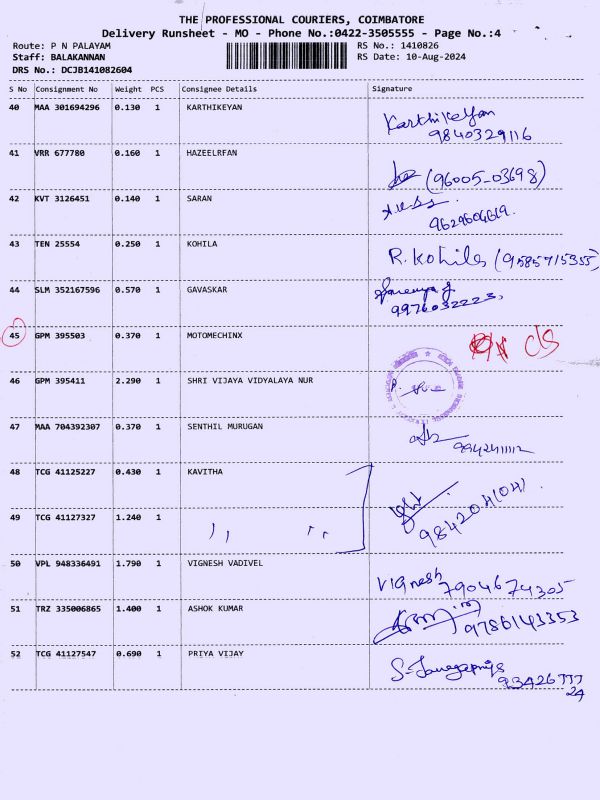 THE PROFESSIONAL COURIERS, COIMBATORE
Delivery Runsheet - MO - Phone No.:0422-3505555 - Page No.:4
Route: P N PALAYAM RS No.: 1410826
Staff: BALAKANNAN RS Date: 10-Aug-2024
DRS No.: DCJB141082604
S No Consignment No Weight PCS Consignee Details Signature
40 MAA 301694296 0.130 1 KARTHIKEYAN Karthikeyan
9840329116
41 VRR 677780 0.160 1 HAZEELRFAN (96005-03698)
42 KVT 3126451 0.140 1 SARAN
9629604619.
43 TEN 25554 0.250 1 KOHILA R. Kohila (9585715355)
44 SLM 352167596 0.570 1 GAVASKAR
9976032223,
45 GPM 395503 0.370 1 MOTOMECHINX C/S
46 GPM 395411 2.290 1 SHRI VIJAYA VIDYALAYA NUR P.
47 MAA 704392307 0.370 1 SENTHIL MURUGAN
9942411112
48 TCG 41125227 0.430 1 KAVITHA
49 TCG 41127327 1.240 1 ,, ,, 9842041041.
50 VPL 948336491 1.790 1 VIGNESH VADIVEL Vignesh
7904674305
51 TRZ 335006865 1.400 1 ASHOK KUMAR
9786143353
52 TCG 41127547 0.690 1 PRIYA VIJAY
9342677724